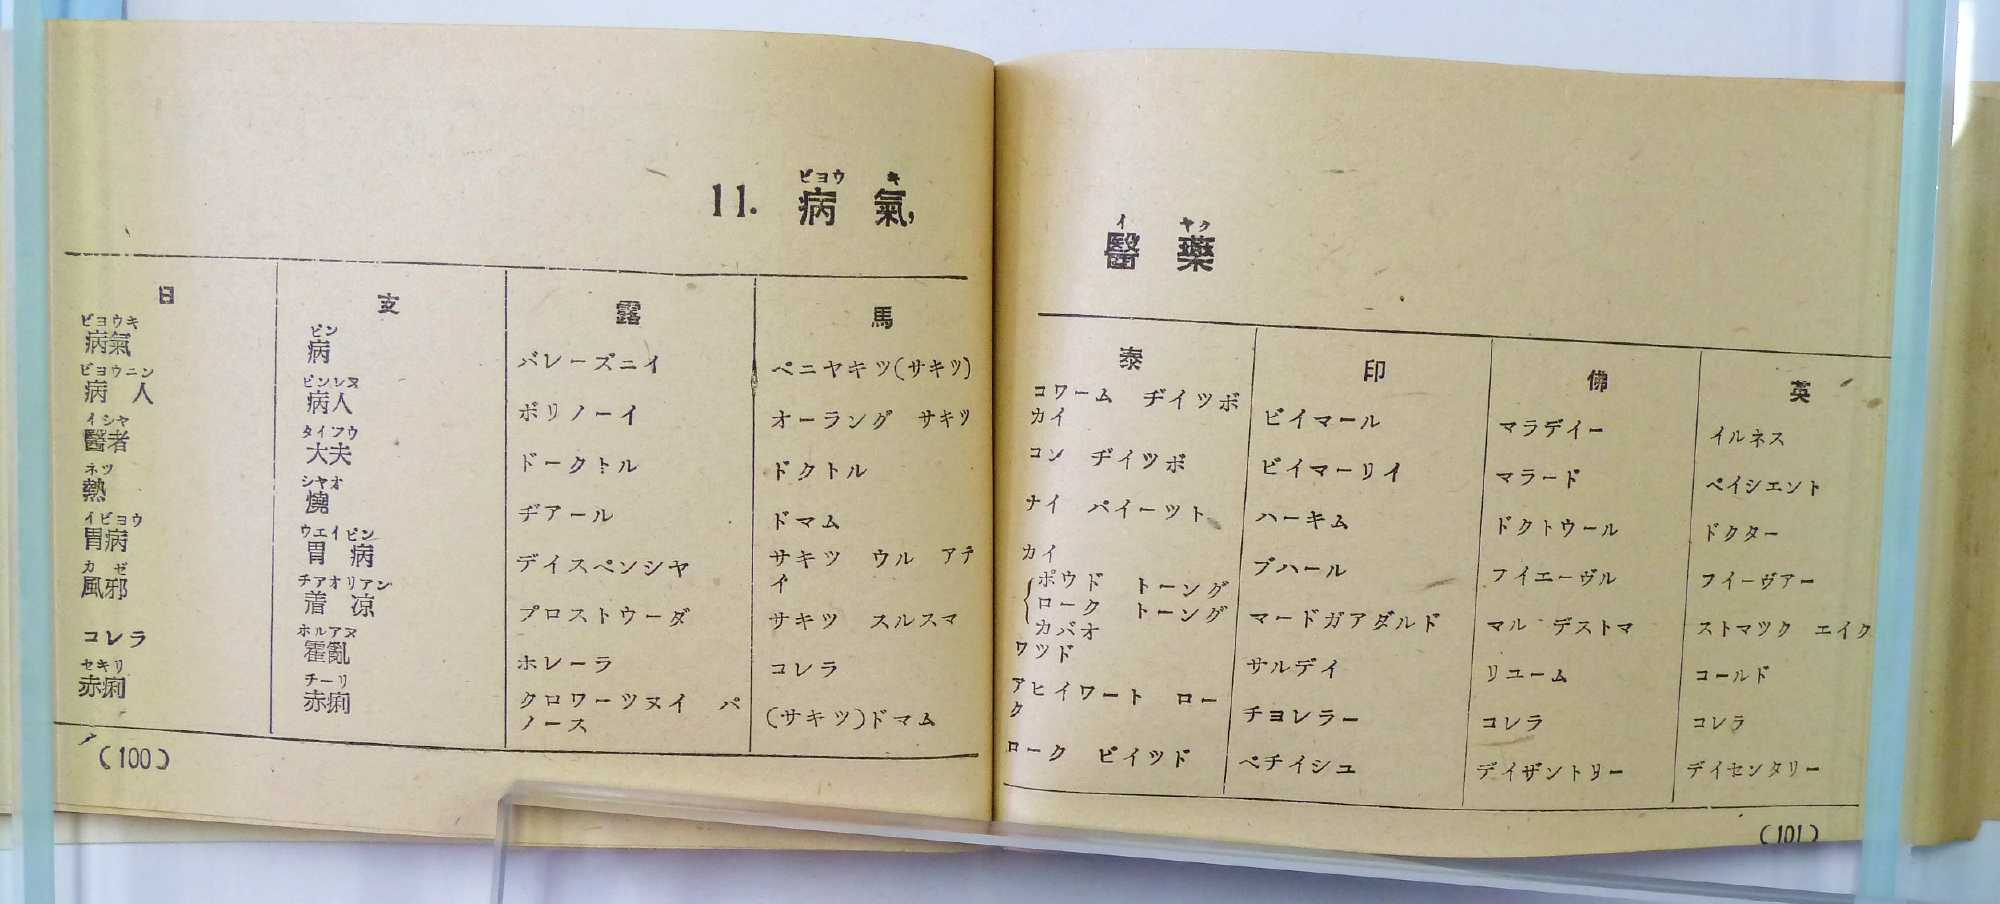 ビヨウ キ
11. 病 氣,
日
ビヨウキ
病氣
ビヨウニン
病 人
イシヤ
醫者
ネツ
熱
イビヨウ
胃病
カ ゼ
風邪
コレラ
セキリ
赤痢
支
ビン
病
ビンレヌ
病人
タイフウ
大夫
シヤオ
燒
ウエイビン
胃 病
チアオリアン
着 凉
ホルアヌ
霍亂
チーリ
赤痢
露
バレーズニイ
ボリノーイ
ドークトル
ヂアール
デイスペンシヤ
プロストウーダ
ホレーラ
クロワーツヌイ パ
ノース
馬
ペニヤキツ(サキツ)
オーラング サキツ
ドクトル
ドマム
サキツ ウル アテ
イ
サキツ スルスマ
コレラ
(サキツ)ドマム
(100)
イ ヤク
醫 藥
泰
コワーム ヂイツボ
カイ
コン ヂイツボ
ナイ パイーツト
カイ
ポウド トーング
ローク トーング
カバオ
ワツド
アヒイワート ロー
ク
ローク ビイツド
印
ビイマール
ビイマーリイ
ハーキム
ブハール
マードガアダルド
サルデイ
チヨレラー
ペチイシユ
佛
マラデイー
マラード
ドクトウール
フイエーヴル
マル デストマ
リユーム
コレラ
デイザントリー
英
イルネス
ペイシエント
ドクター
フイーヴアー
ストマツク エイク
コールド
コレラ
デイセンタリー
(101)